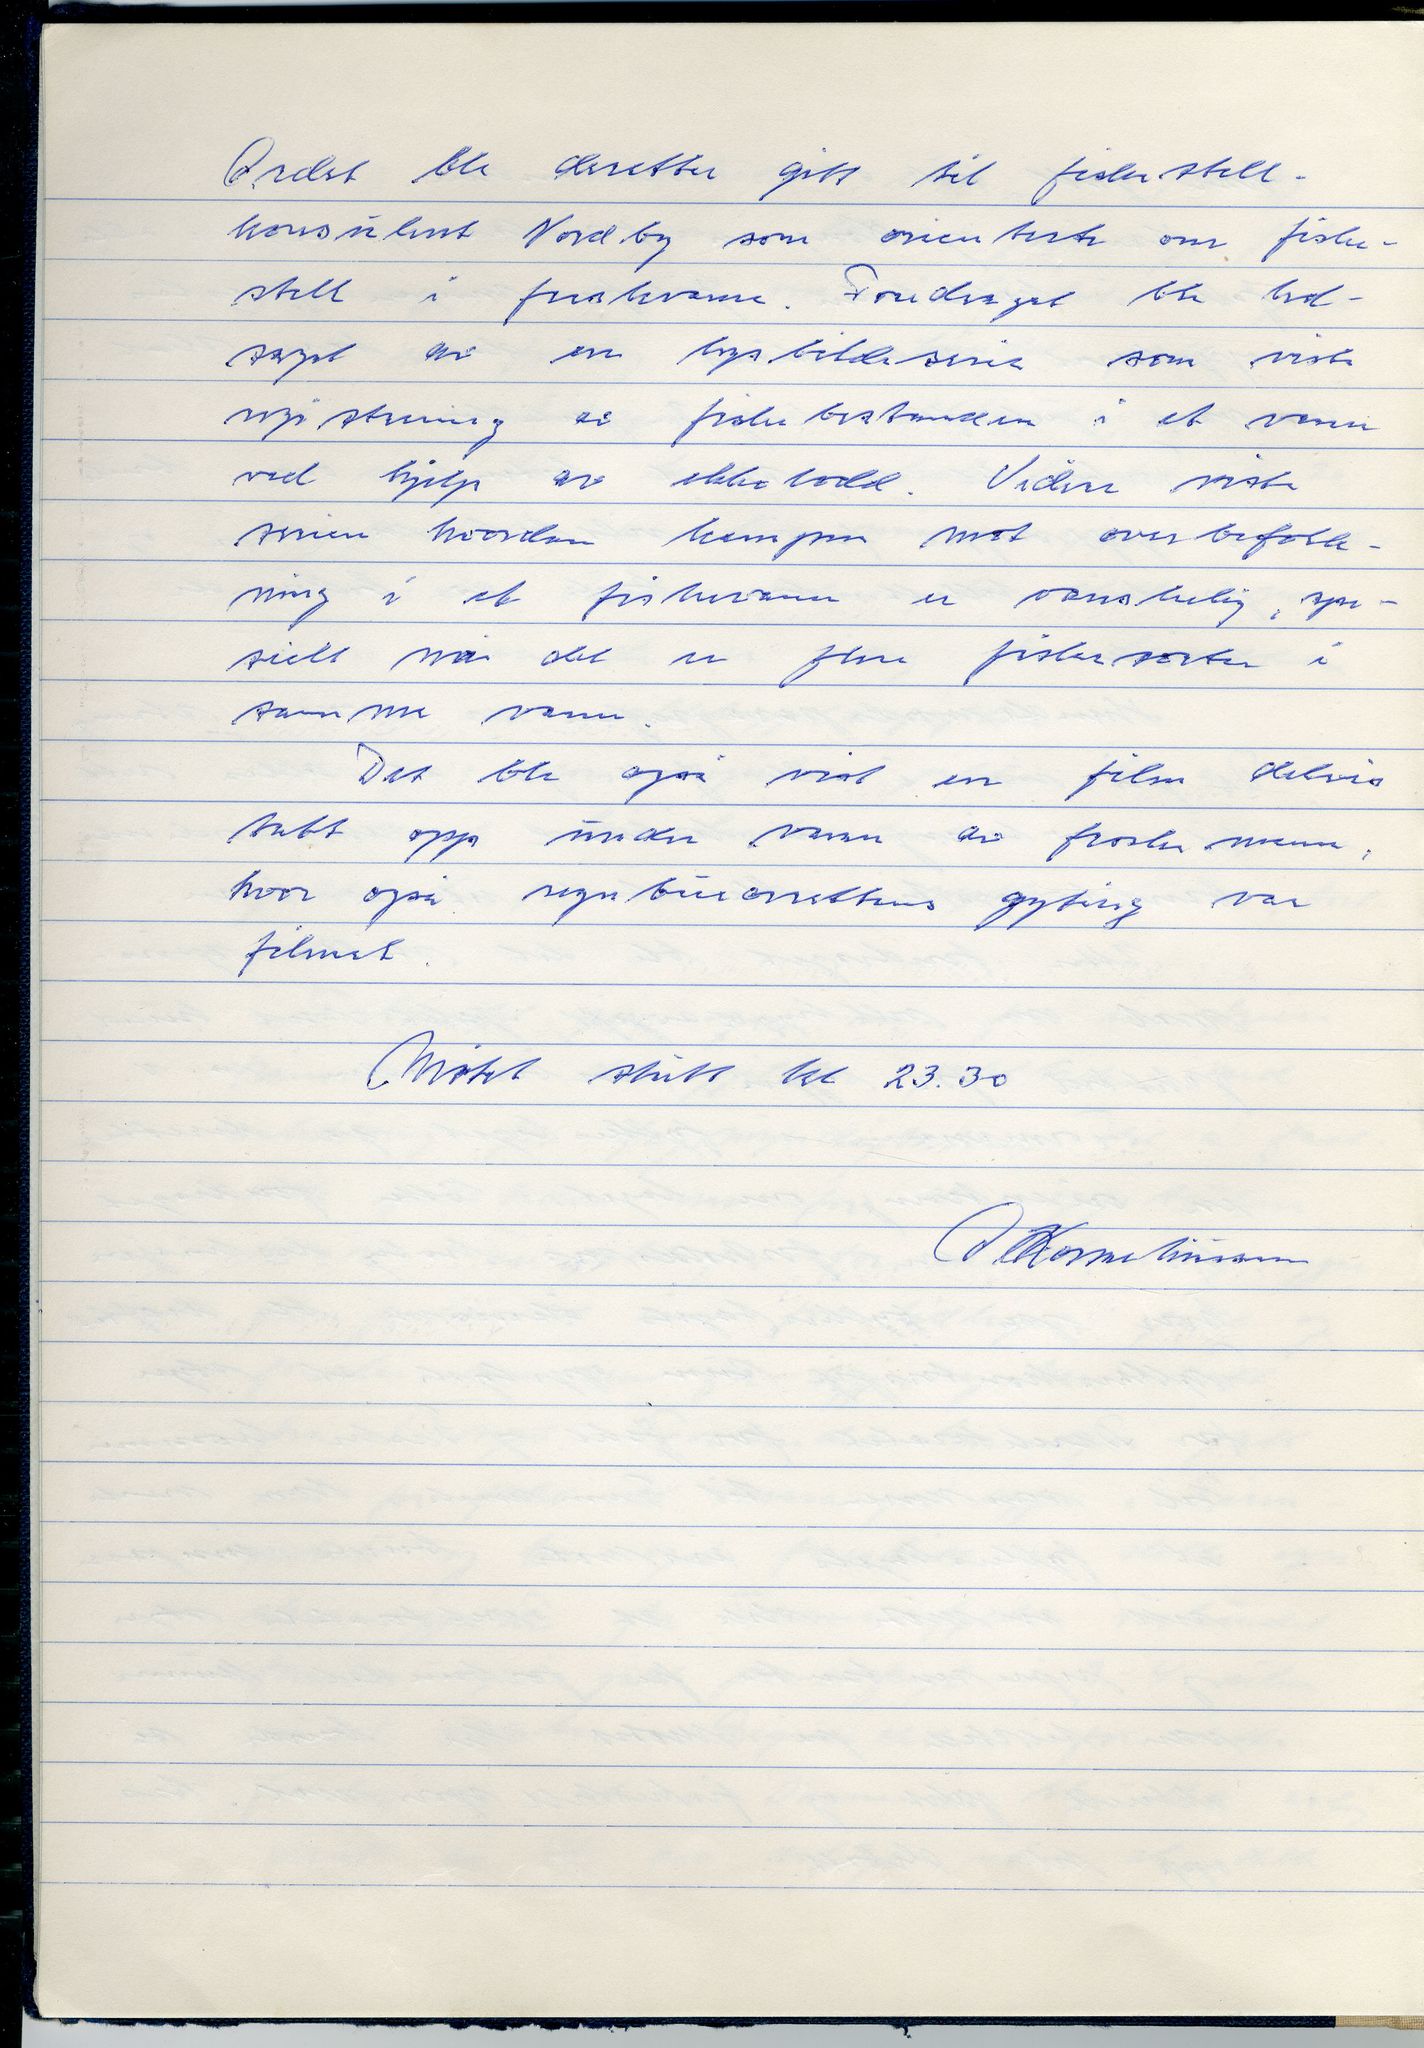 Ordet ble deretter gitt til fiskestell-
konsulent Nordby som orienterte om fiske-
stell i ferskvann. Foredraget ble led-
saget av en lysbildeserie som viste
registrering av fiskebestanden i et vann
ved hjelp av ekkolodd. Videre viste
serien hvordan kampen mot overbefolk-
ning i et fiskevann er vanskelig, spe-
sielt når det er flere fiskesorter i
samme vann.
Det ble også vist en film delvis
tatt opp under vann av froskemenn,
hvor også regnbueørrettens gyting var
filmet.
Møtet slutt kl 23.30